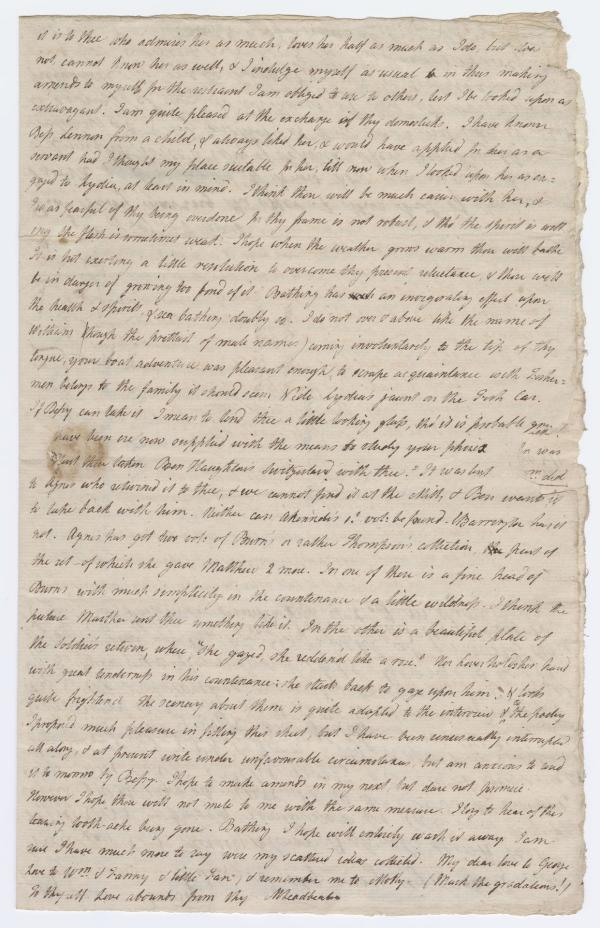 it is to thee who admires her as much, loves her half as much as I do, but does
not, cannot know her as well, & I indulge myself as usual in thus making
amends to myself for the restraint I am obliged to use to others, lest I be looked upon as
extravagant. I am quite pleased at the exchange of thy domestick. I have known
Bess Lennon from a child, & always liked her, & would have applied for her as a
servant had I thought my place suitable for her, till now when I looked upon her as en-
gaged to Lydia, at least in mind. I think thou will be much easier with her, &
I was fearful of thy being overdone for thy frame is not robust, & tho' the spirit is will
ing the flesh is sometimes weak. I hope when the weather grows warm thou will bathe
It is but exerting a little resolution to overcome thy present reluctance, & thou will
be in danger of growing too fond of it. Bathing has such an invigorating effect upon
the health & spirits, & sea bathing doubly so. I do not over & above like the name of
William (though the prettiest of male names) coming involuntarily to the tip of thy
tongue, your boat adventure was pleasant enough, to scrape acquaintance with Fisher-
men belongs to the family it should seem. Vide Lydia's jaunt on the Irish Car.
If Betsy can take it I mean to lend thee a little looking glass, tho' it is probable you
have been ere now supplied with the means to study your phiz.
thou taken Ben Haughton's Switzerland with thee? It was lent
to Agnes who returned it to thee, & we cannot find it at the Mill, & Ben wants it
to take back with him. Neither can 1st vol: be found. Barrington has it
not. Agnes has got two vols: of Burns's or rather Thompson's collection, present of
the set of which she gave Matthew 2 more. In one of these is a fine head of
Burns with much simplicity in the countenance & a little wildness. I think the
picture Martha sent thee something like it. In the other is a beautiful plate of
the Soldier's return, where "She gazed, she redden'd like a rose." Her lover holds her hand
with great tenderness in his countenance: she starts back to gaze upon him & looks
quite frightened. The scenery about them is quite adapted to the interview & to the poetry
I proposed much pleasure in filling this sheet, but I have been unusually interrupted
all along, & at present write under unfavourable circumstances, but am anxious to send
it to morrow by Betsy. I hope to make amends in my next, but dare not promise.
However I hope thou will not mete to me with the same measure. I long to hear of this
teasing tooth-ache being gone. Bathing I hope will entirely wash it away. I am
sure I have much more to say were my scattered ideas collected. My dear love to George
love to Wm. & Fanny & little Jane, & remember me to Molly. (Mark the gradations!)
To thy all love abounds from thy MLeadbeater